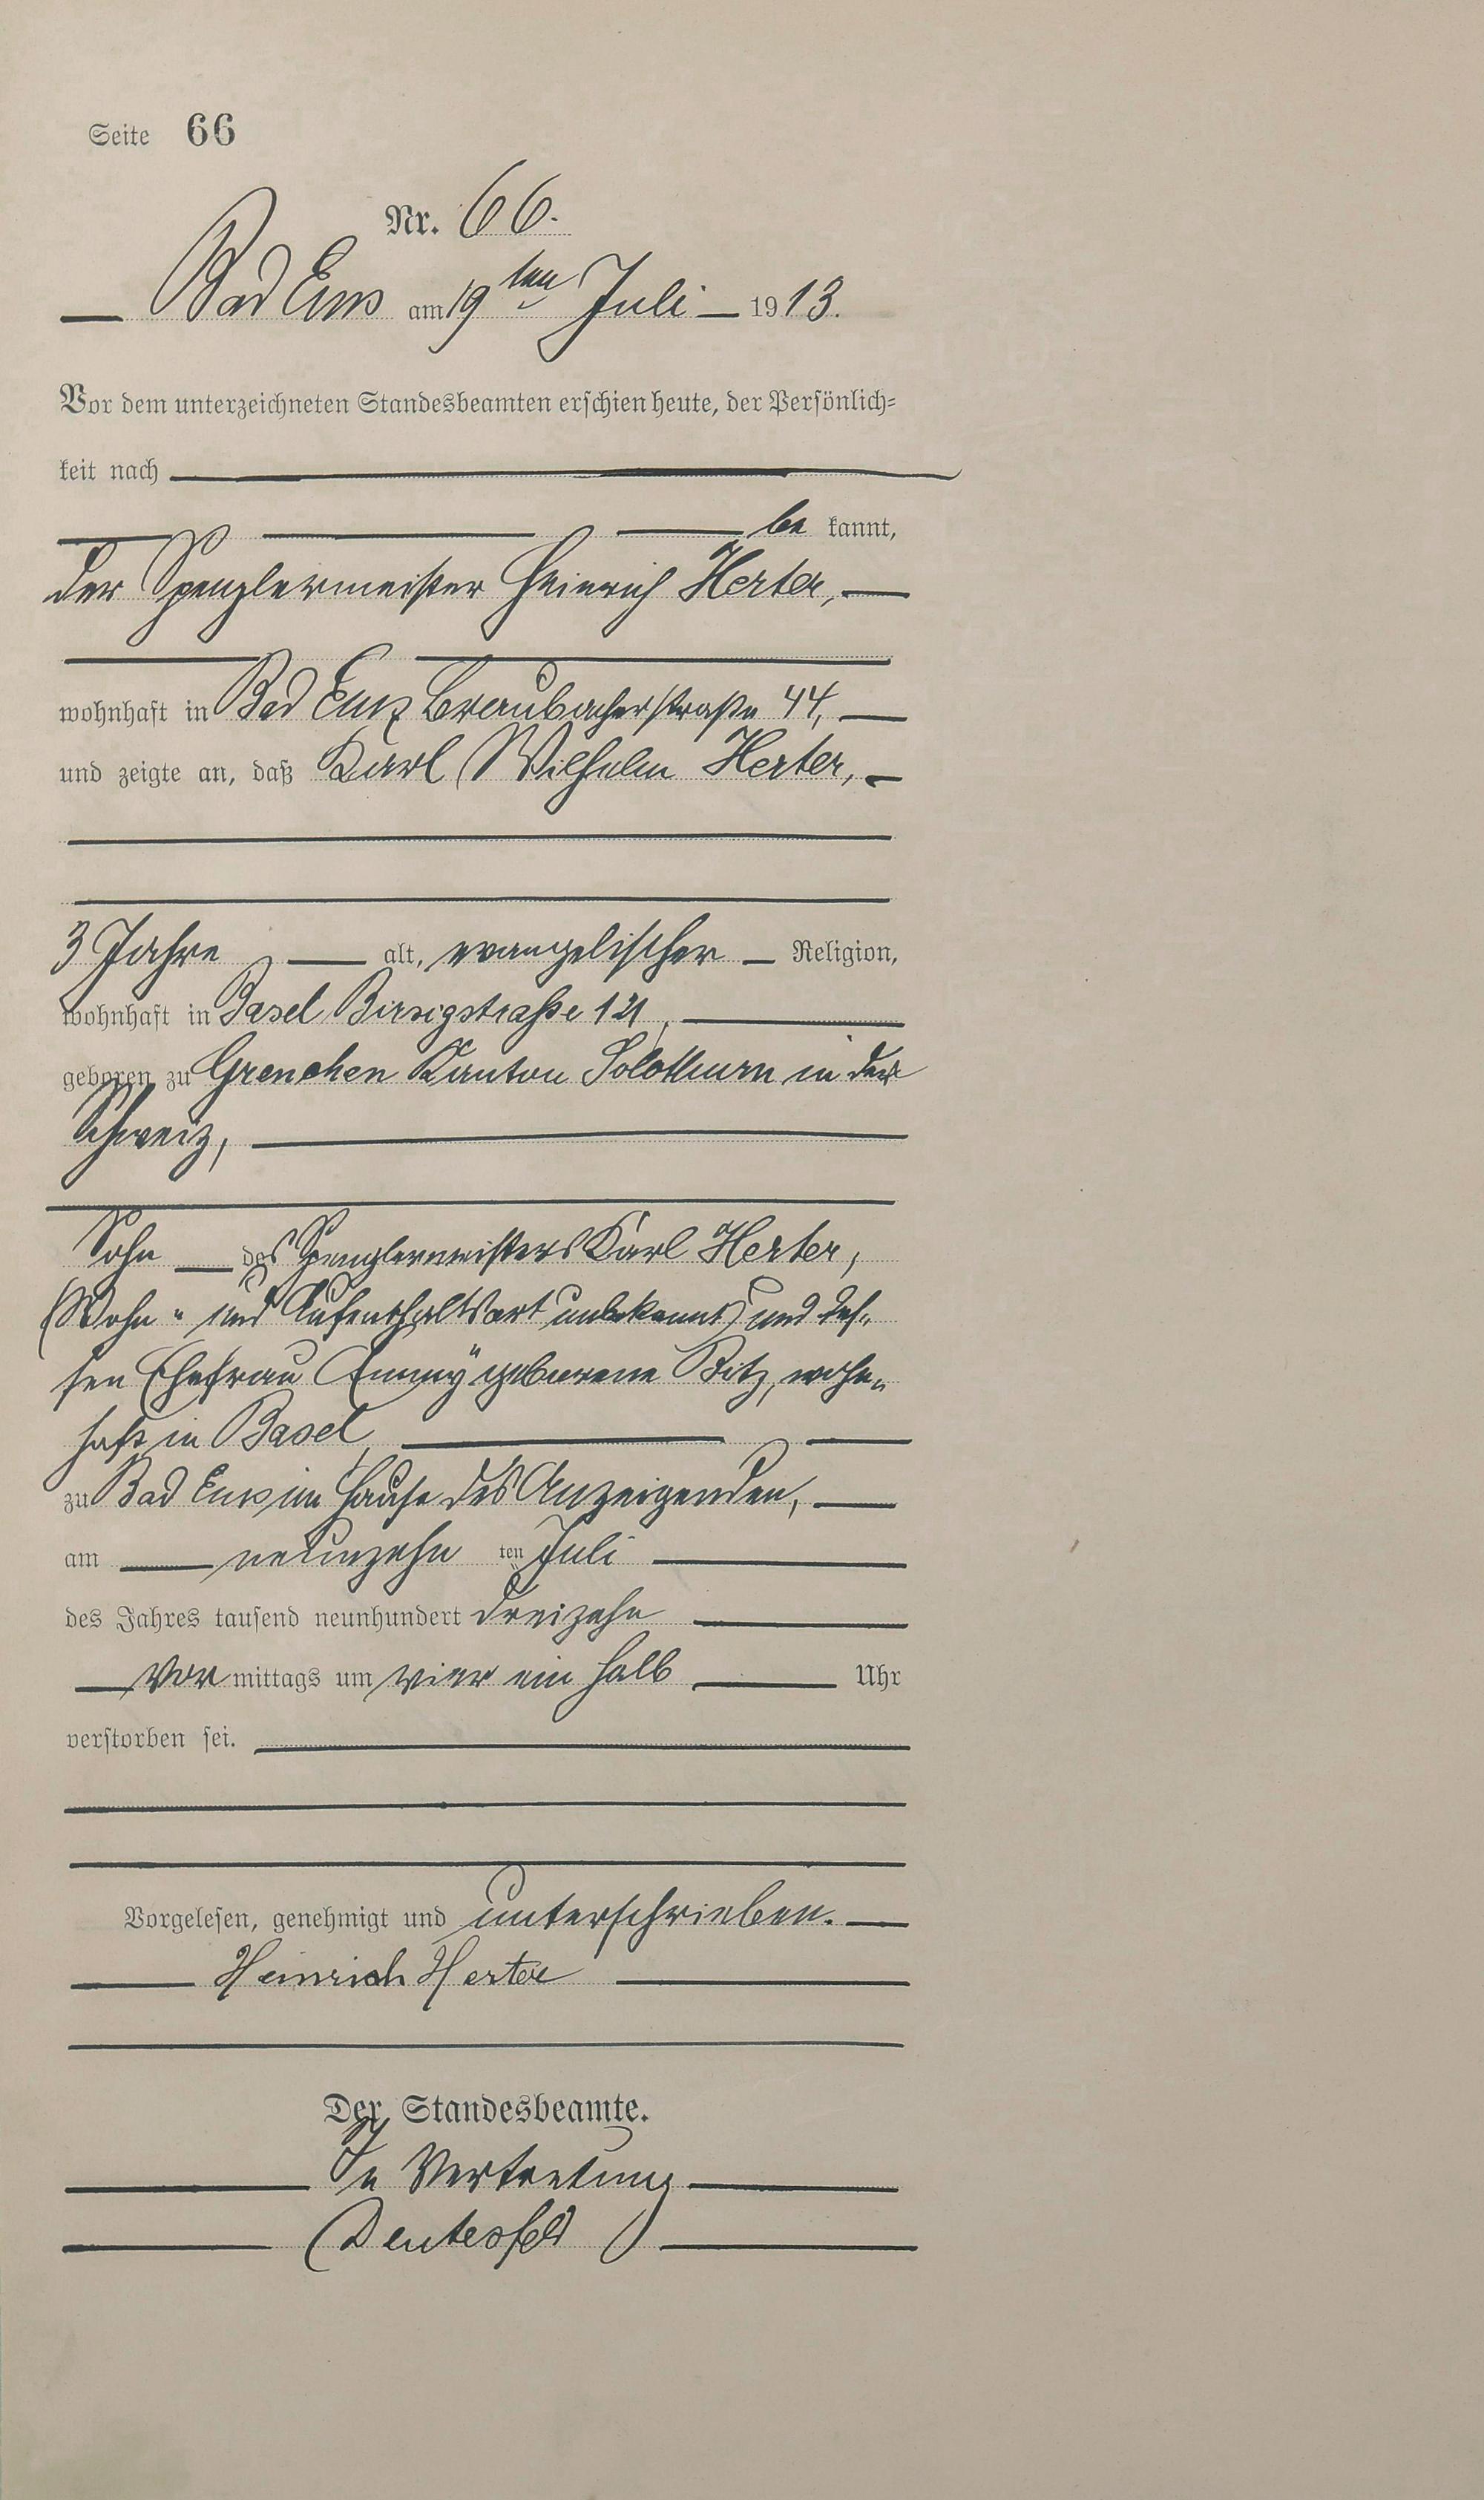 Seite 66
Nr. 66.
Bad Ems am 19ten Juli 1913.
Vor dem unterzeichneten Standesbeamten erschien heute, der Persönlich-
keit nach
be kannt,
der Spenglermeister Heinrich Herter,
wohnhaft in Bad Ems Braubacherstraße 44,
und zeigte an, daß Karl Wilhelm Herter,
3 Jahre alt, evangelischer Religion,
wohnhaft in Basel Birsigstraße 121,
geboren zu Grenchen Kanton Solothurn in der
Schweiz,
Sohn des Spenglermeisters Karl Herter,
(Wohn- und Aufenthaltsort unbekannt) und des-
sen Ehefrau Emmy geborene Bitz, wohn-
haft in Basel,
zu Bad Ems im Hause des Anzeigenden,
am neunzehn ten Juli
des Jahres tausend neunhundert dreizehn
Vor mittags um vier ein halb Uhr
verstorben sei.
Vorgelesen, genehmigt und unterschrieben.
Heinrich Herter
Der Standesbeamte.
In Vertretung